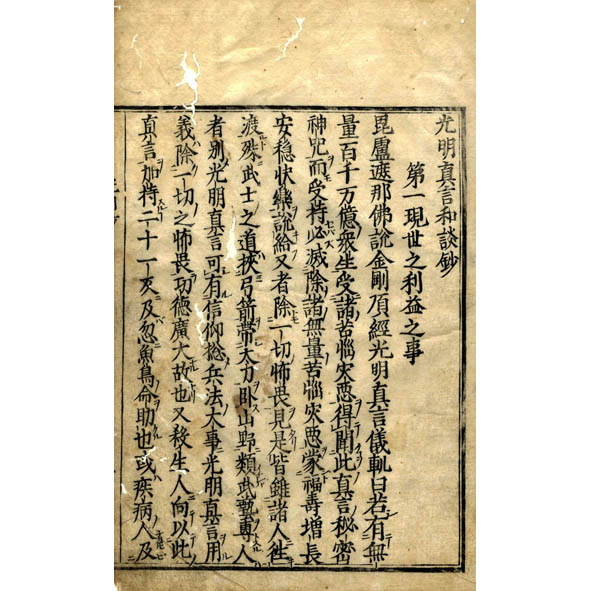 光明真言和談鈔
第一現世之利益之事
毘盧遮那佛說金剛頂經光明真言儀軌曰若有無
量百千万億衆生受諸苦惱灾惡得聞此真言秘密
神咒而受持必滅除諸無量苦惱灾惡蒙福壽增長
安穏快樂說給又者除一切怖畏見是皆雖諸人徃
渡殊武士之道挾弓箭帶太刀臥山野類武藝專人
者別光明真言可有信仰捴兵法大事光明真言用
義除一切之怖畏功德廣大故也又殺生人向以此
真言加持二十一反及忽魚鳥命助也或疾病人及